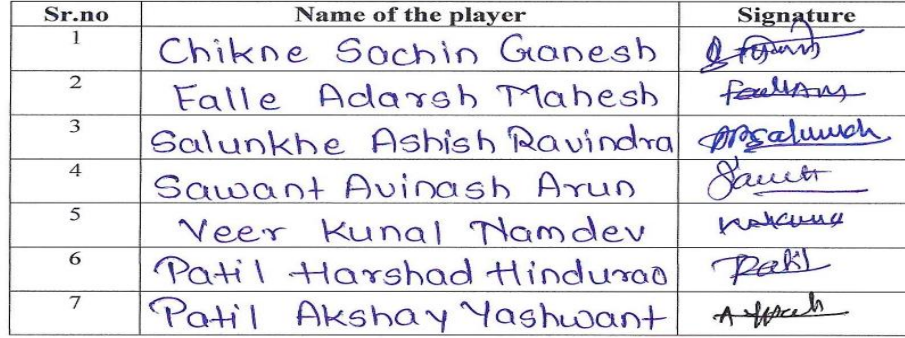 Sr.no Name of the player Signature
1 Chikne Sachin Ganesh
2 Falle Adarsh Mahesh
3 Salunkhe Ashish Ravindra
4 Sawant Avinash Arun
5 Veer Kunal Namdev
6 Patil Harshad Hindurao Patil
7 Patil Akshay Yashwant